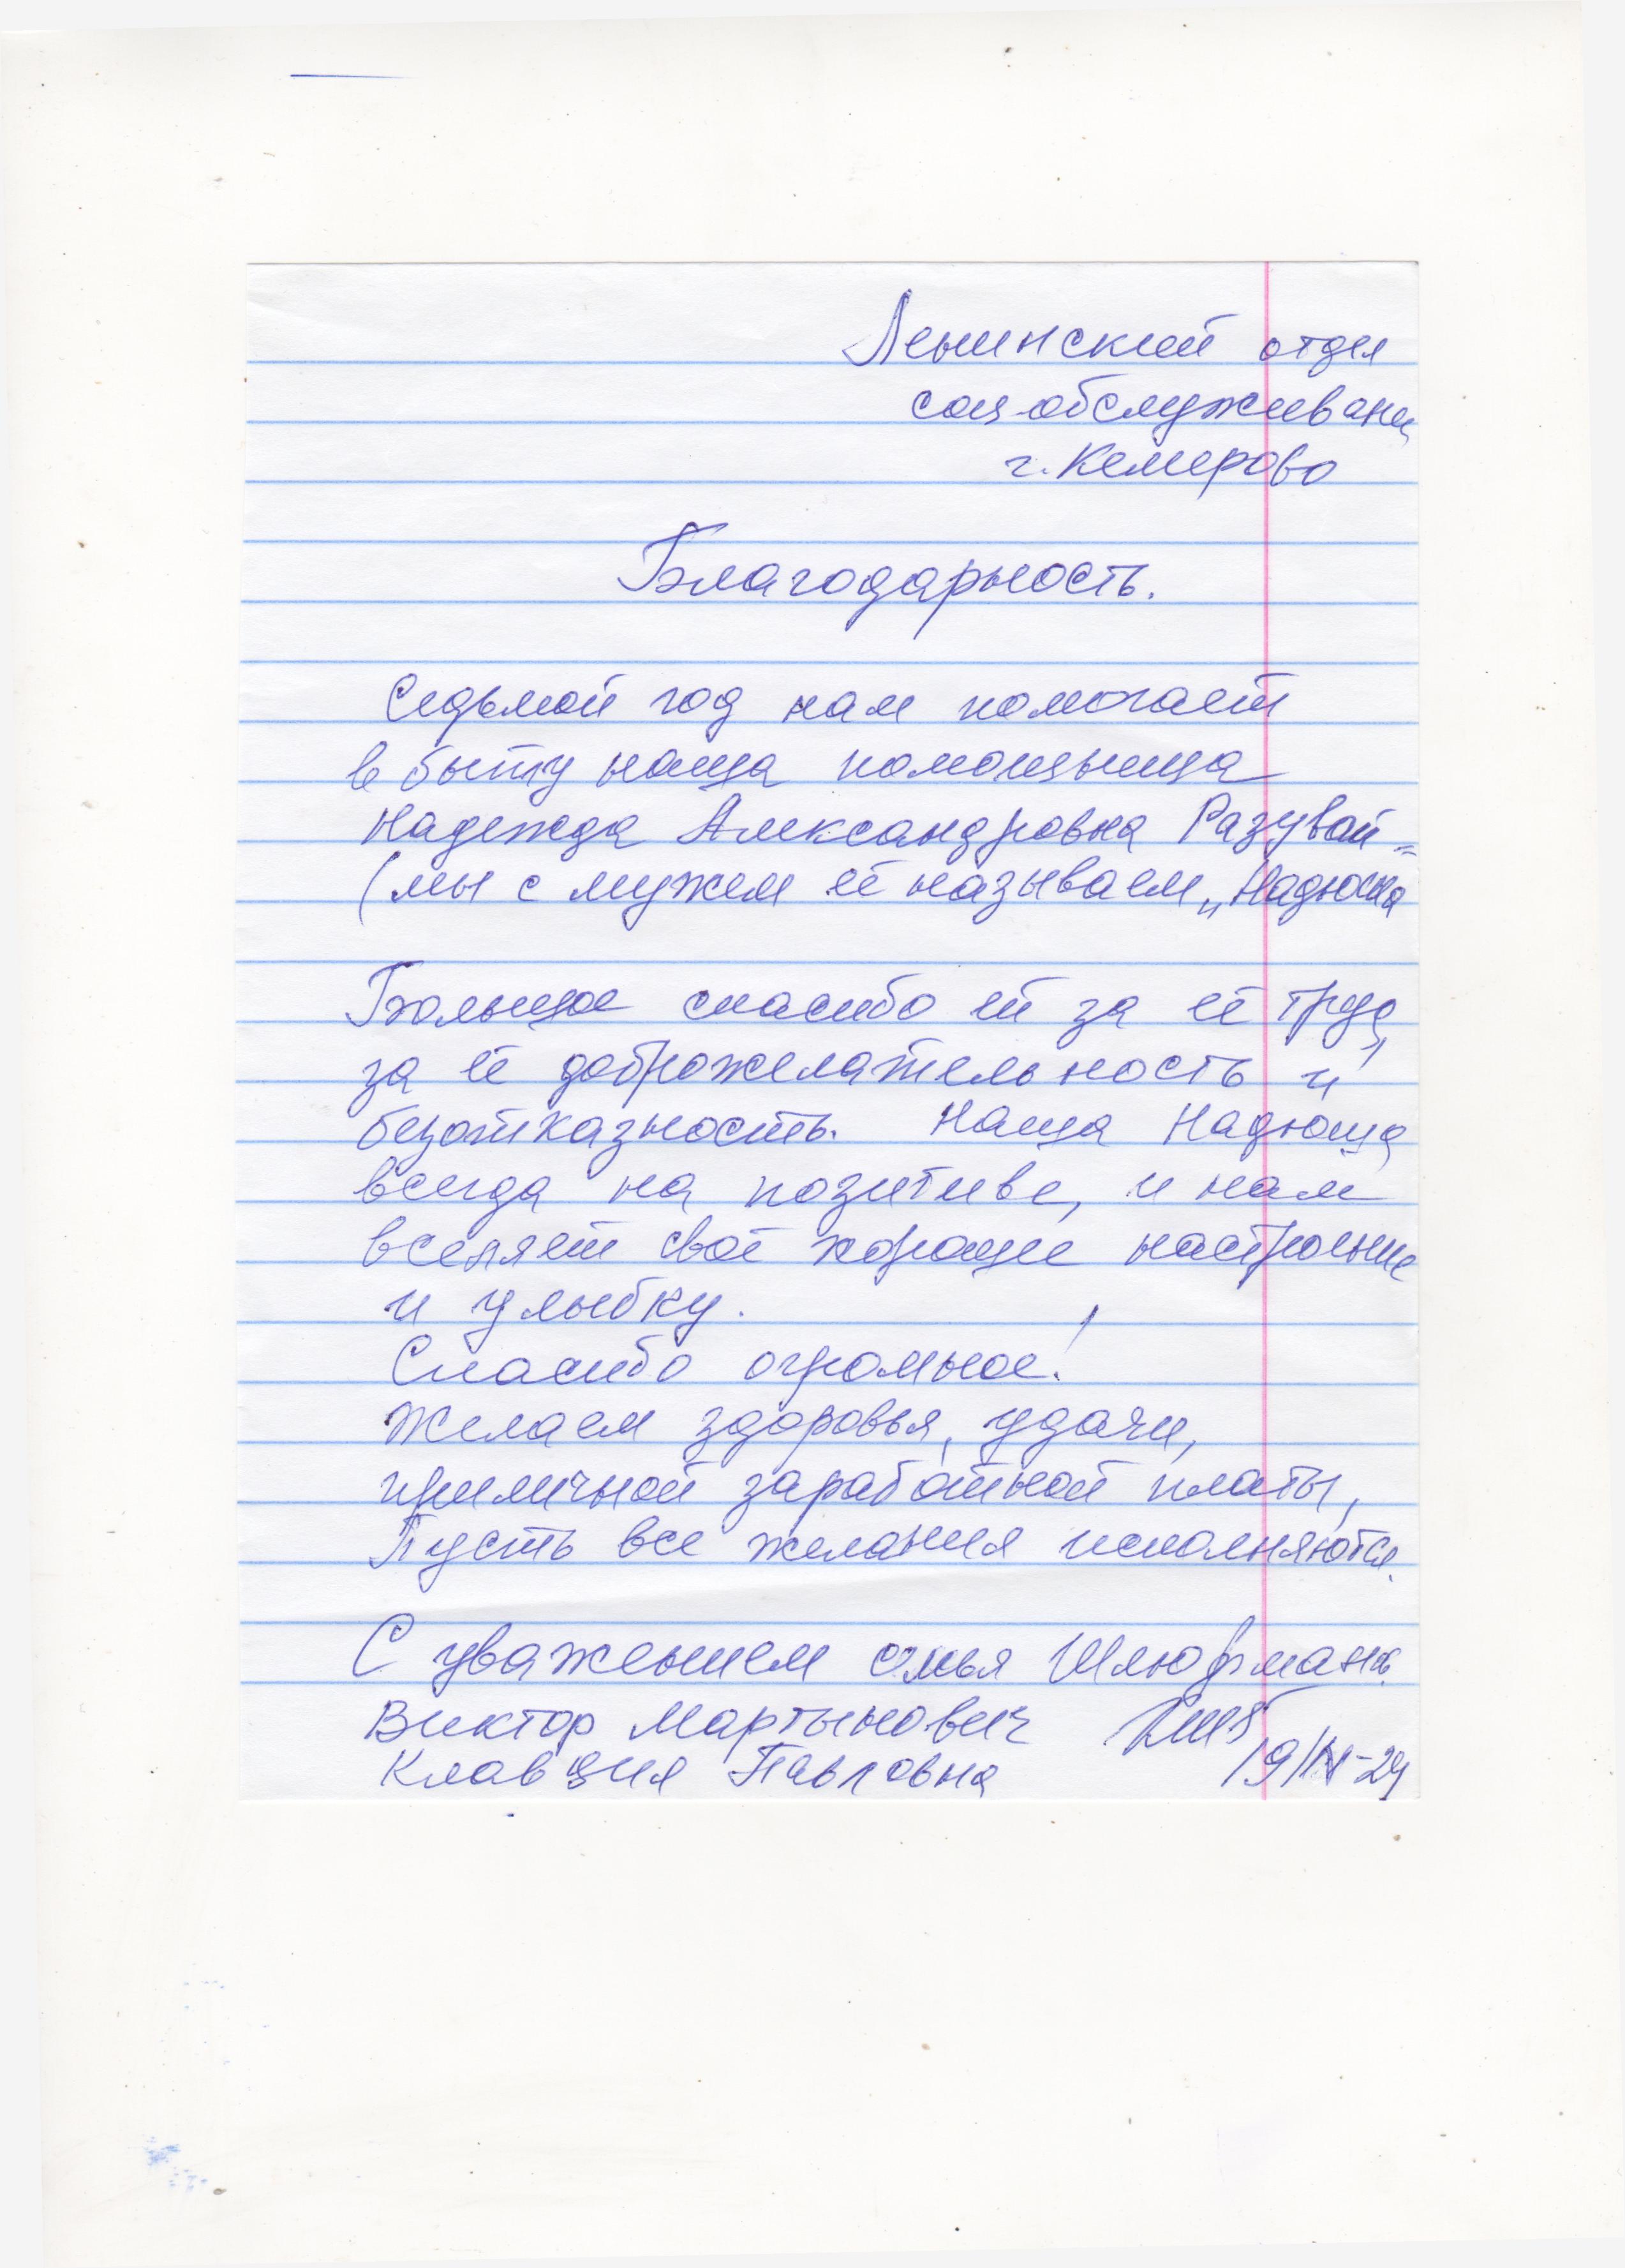 Ленинский отдел
соц-обслуживани
г. Кемерово
Благодарность.
Седьмой год нам помогает
в быту наша помощница
Надежда Александровна Разувай=
(мы с мужем её называем „Надюша
Большое спасибо ей за её труд,
за её доброжелательность и
безотказность. Наша Надюша
всегда на позитиве, и нам
вселяет своё хорошее настроение
и улыбку.
Спасибо огромное!
Желаем здоровья, удачи,
приличной заработной платы,
Пусть все желания исполняются.
С уважением семья
Виктор Мартынович
Клавдия Павловна 19/IV-24